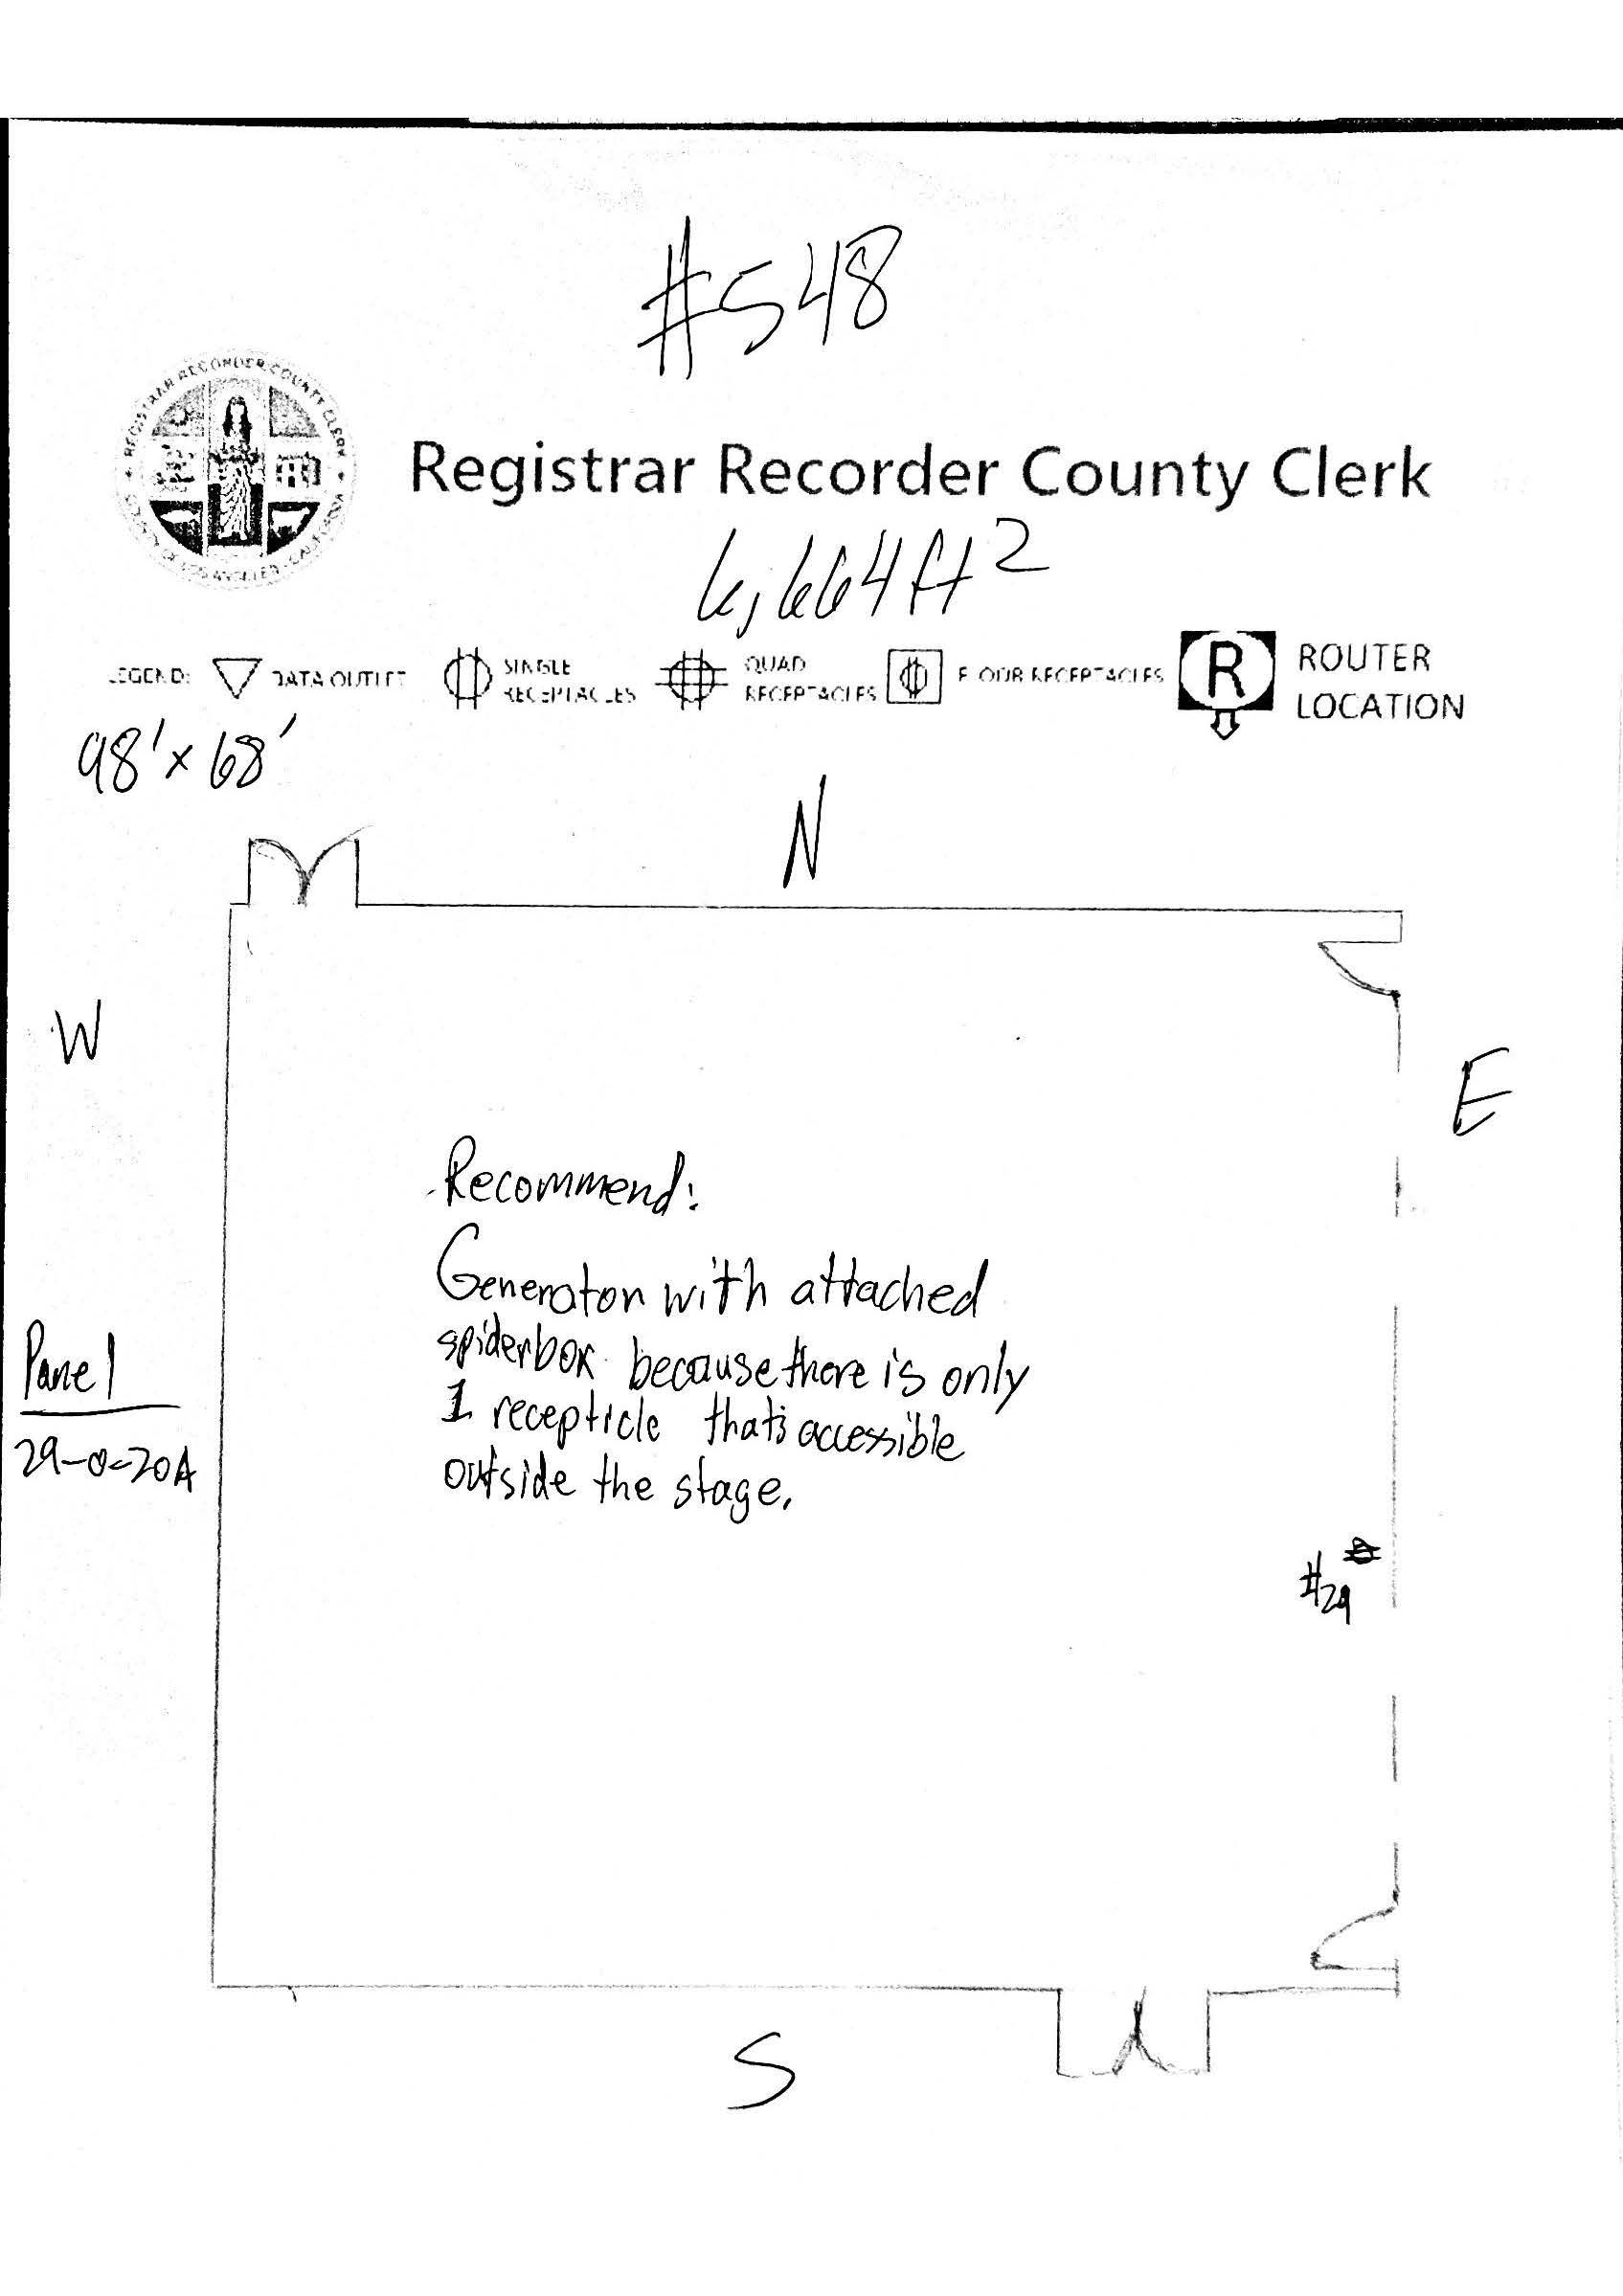 #548
REGISTRAR RECORDER COUNTY CLERK
COUNTY OF LOS ANGELES - CALIFORNIA
Registrar Recorder County Clerk
6,664 ft²
LEGEND: DATA OUTLET SINGLE RECEPTACLES QUAD RECEPTACLES FLOOR RECEPTACLES R ROUTER LOCATION
98' x 68'
N
W
E
Recommend:
Generator with attached
spiderbox because there is only
1 recepticle that's accessible
outside the stage.
Panel
29-0-20A
#29
S